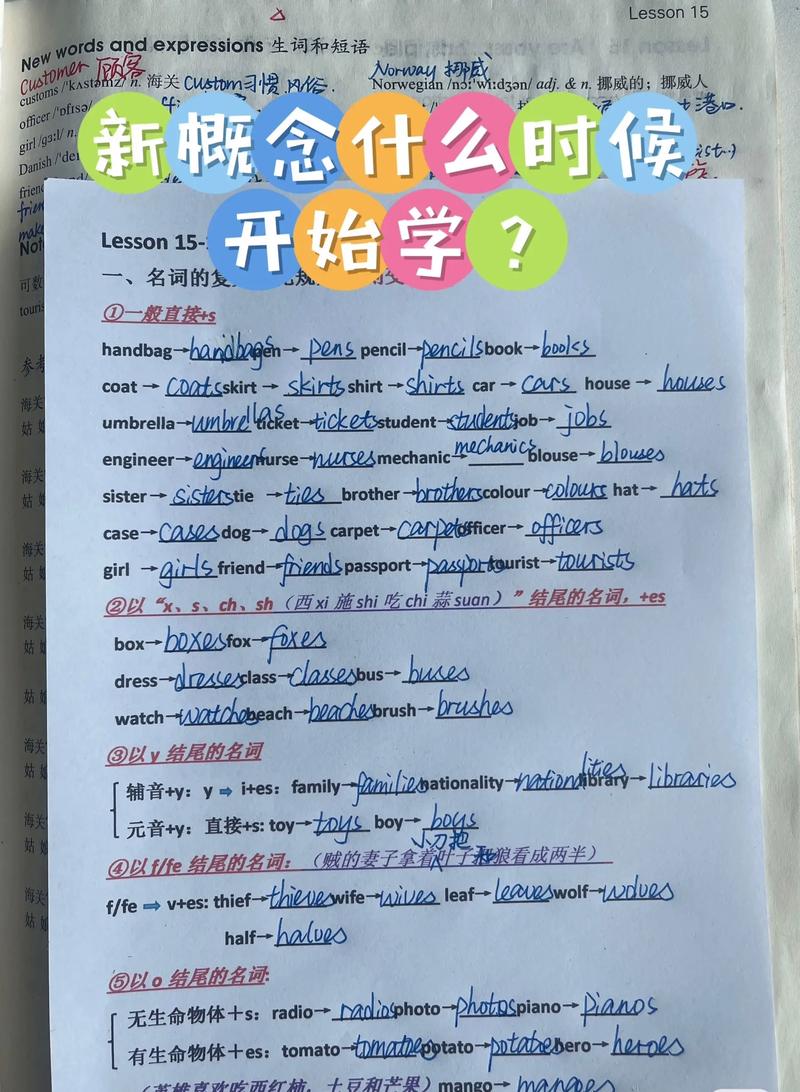 Lesson 15
New words and expressions 生词和短语
Customer 顾客
Norway 挪威
customs /'kʌstəmz/ n. 海关 custom习惯 风俗.
Norwegian /nɔː'wiːdʒən/ adj. & n. 挪威的；挪威人
officer /'ɒfɪsə/
港口.
girl /gɜːl/ n.
Danish
friend
新概念什么时候
开始学？
Lesson 15-
一、名词的复
①一般直接+s
handbag→handbags pen→ pens pencil→pencils book→books
coat → coats skirt → skirts shirt →shirts car → cars house → houses
umbrella→umbrellas ticket→tickets student→students job→ jobs
engineer→engineers nurse→nurses mechanic→mechanics blouse→ blouses
sister→ sisters tie →ties brother→brothers colour→colours hat→ hats
case→cases dog→ dogs carpet→carpets officer→ officers
girl →girls friend→friends passport→passports tourist→tourists
②以“x、s、ch、sh（西 xi 施 shi 吃 chi 蒜 suan）”结尾的名词，+es
box→boxes fox→foxes
dress→dresses class→classes bus→ buses
watch→watches beach→beaches brush→ brushes
③以 y 结尾的名词
辅音+y: y ➡ i+es: family→families nationality→nationalities library→libraries
元音+y: 直接+s: toy→toys boy→ boys
小刀把
④以 f/fe 结尾的名词:（贼的妻子拿着叶子和狼看成两半）
f/fe ➡ v+es: thief→thieves wife→wives leaf→leaves wolf→wolves
half→halves
⑤以 o 结尾的名词:
无生命物体＋s: radio→ radios photo→photos piano→pianos
有生命物体＋es: tomato→tomatoes potato→potatoes hero→heroes
（英雄喜欢吃西红柿，土豆和芒果）mango→ mangoes